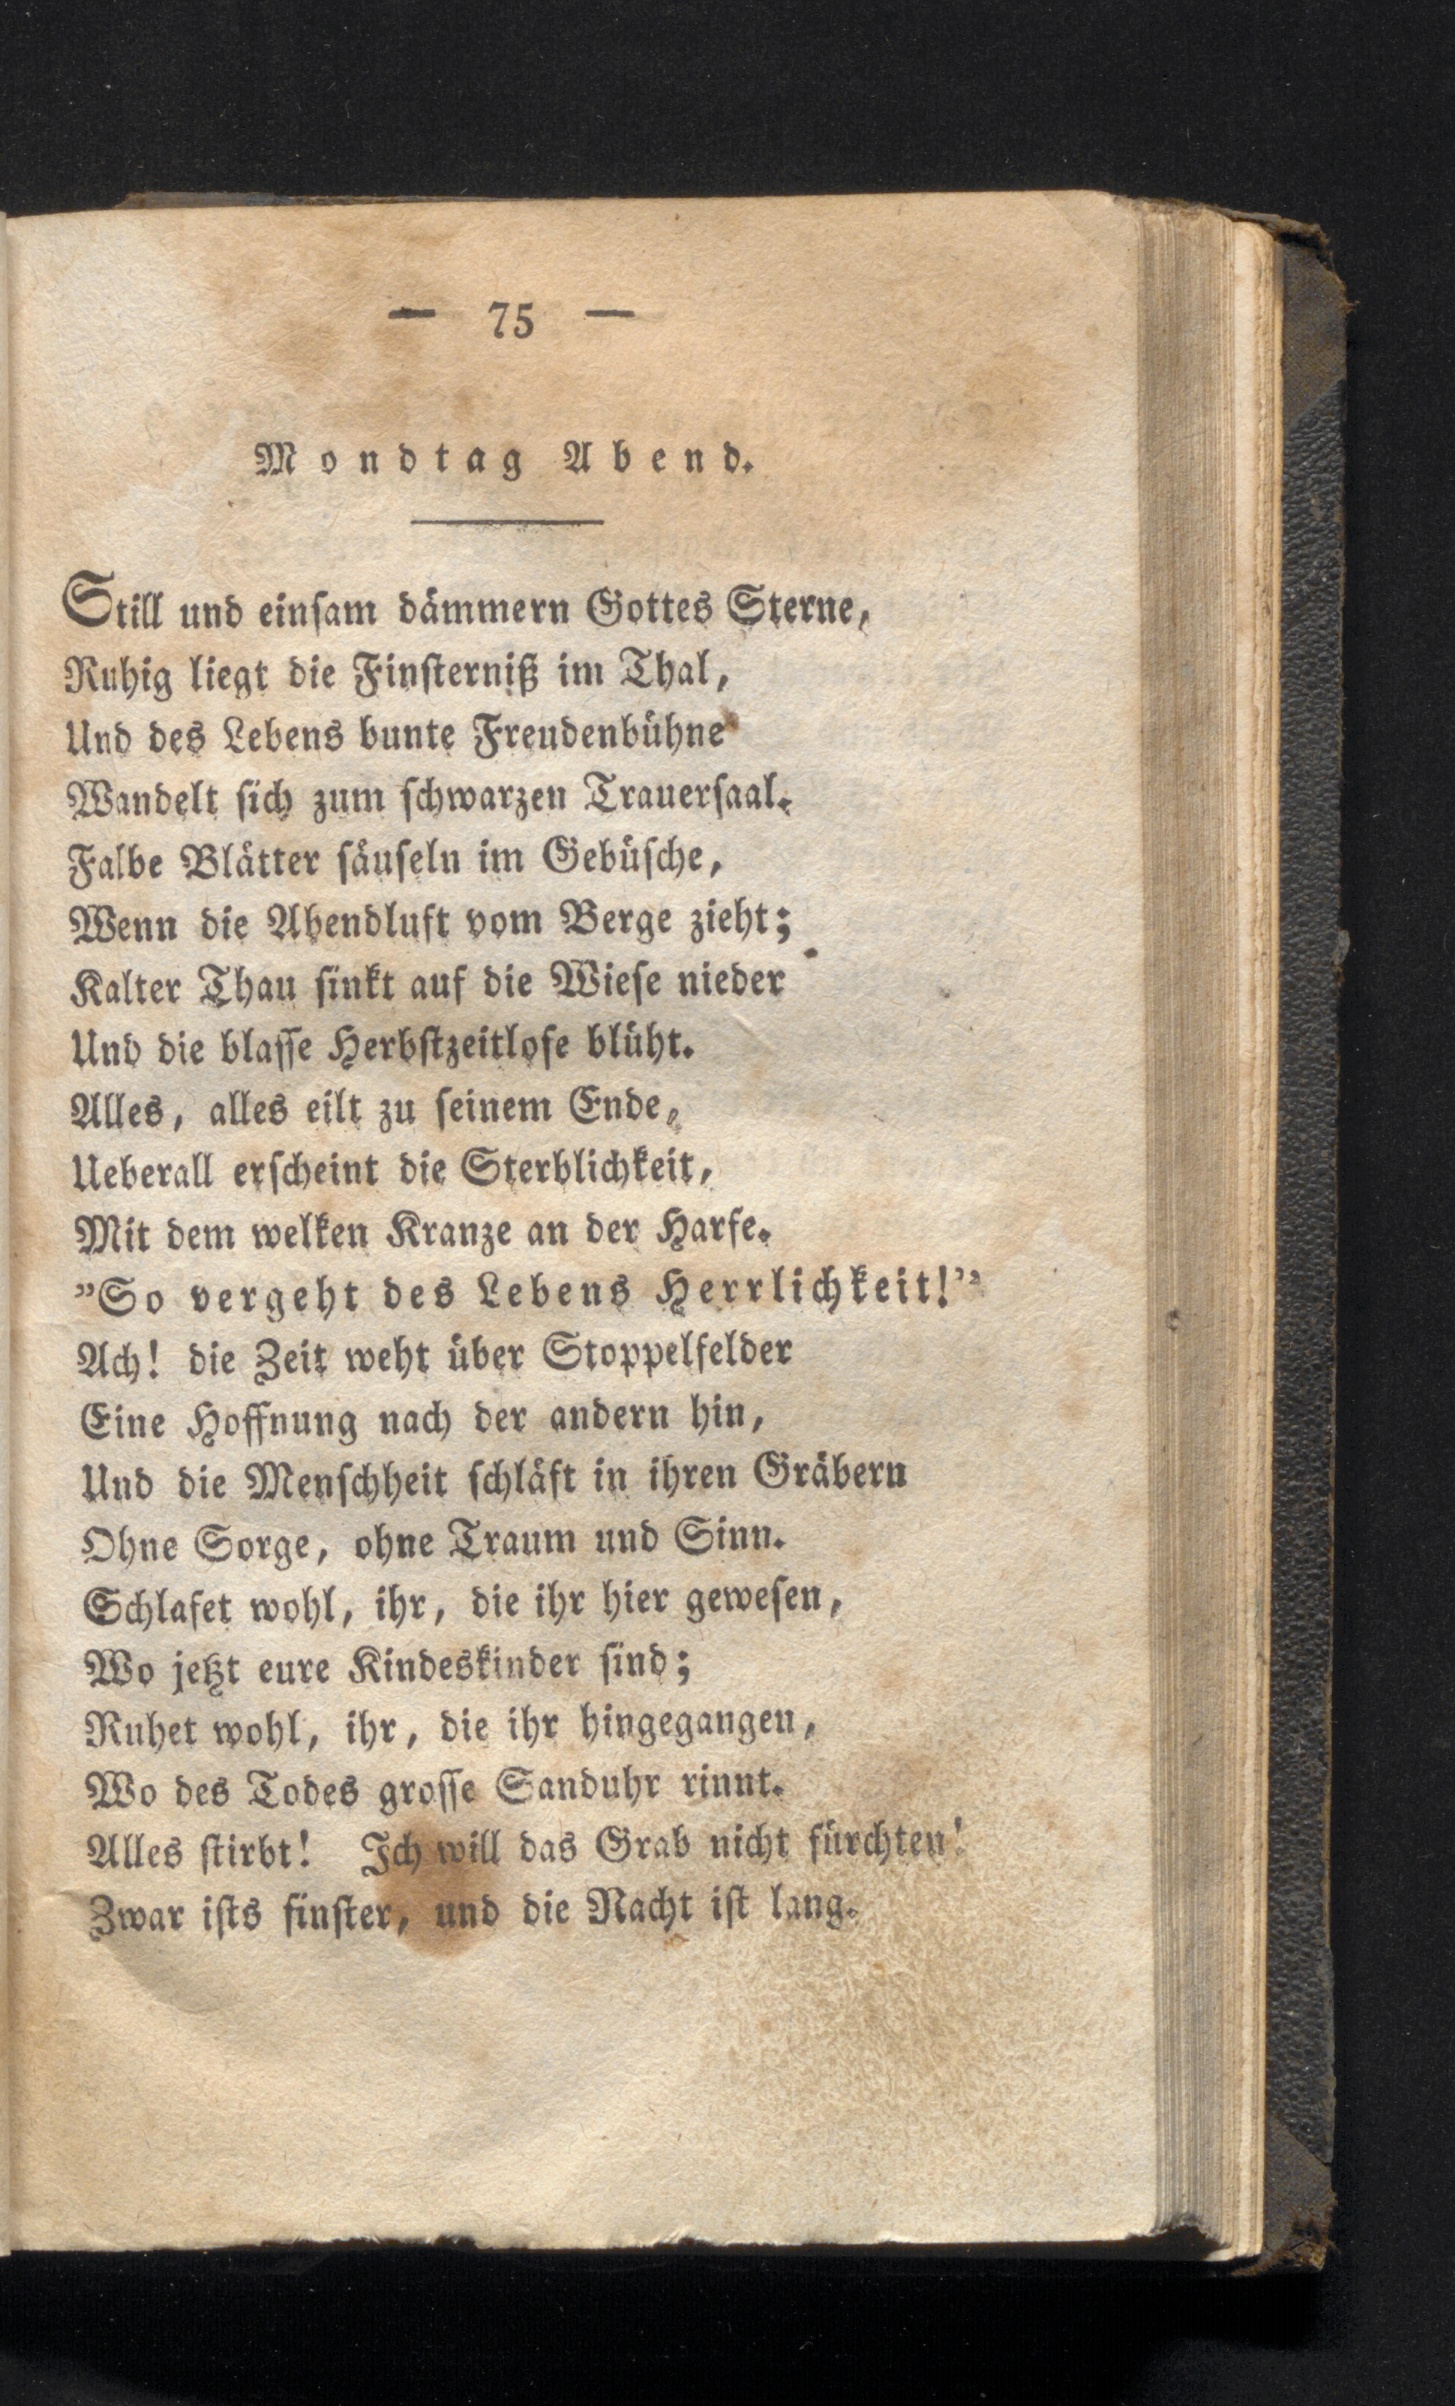 — 75 —
Mondtag Abend.
Still und einſam dämmern Gottes Sterne,
Ruhig liegt die Finſterniß im Thal,
Und des Lebens bunte Freudenbühne
Wandelt ſich zum ſchwarzen Trauerſaal.
Falbe Blätter ſäuſeln im Gebüſche,
Wenn die Abendluft vom Berge zieht;
Kalter Thau ſinkt auf die Wieſe nieder
Und die blaſſe Herbſtzeitloſe blüht.
Alles, alles eilt zu ſeinem Ende,
Ueberall erſcheint die Sterblichkeit,
Mit dem welken Kranze an der Harfe.
”So vergeht des Lebens Herrlichkeit!”
Ach! die Zeit weht über Stoppelfelder
Eine Hoffnung nach der andern hin,
Und die Menſchheit ſchläft in ihren Gräbern
Ohne Sorge, ohne Traum und Sinn.
Schlafet wohl, ihr, die ihr hier geweſen,
Wo jetzt eure Kindeskinder ſind;
Ruhet wohl, ihr, die ihr hingegangen,
Wo des Todes groſſe Sanduhr rinnt.
Alles ſtirbt! Ich will das Grab nicht fürchten!
Zwar iſts finſter, und die Nacht iſt lang.